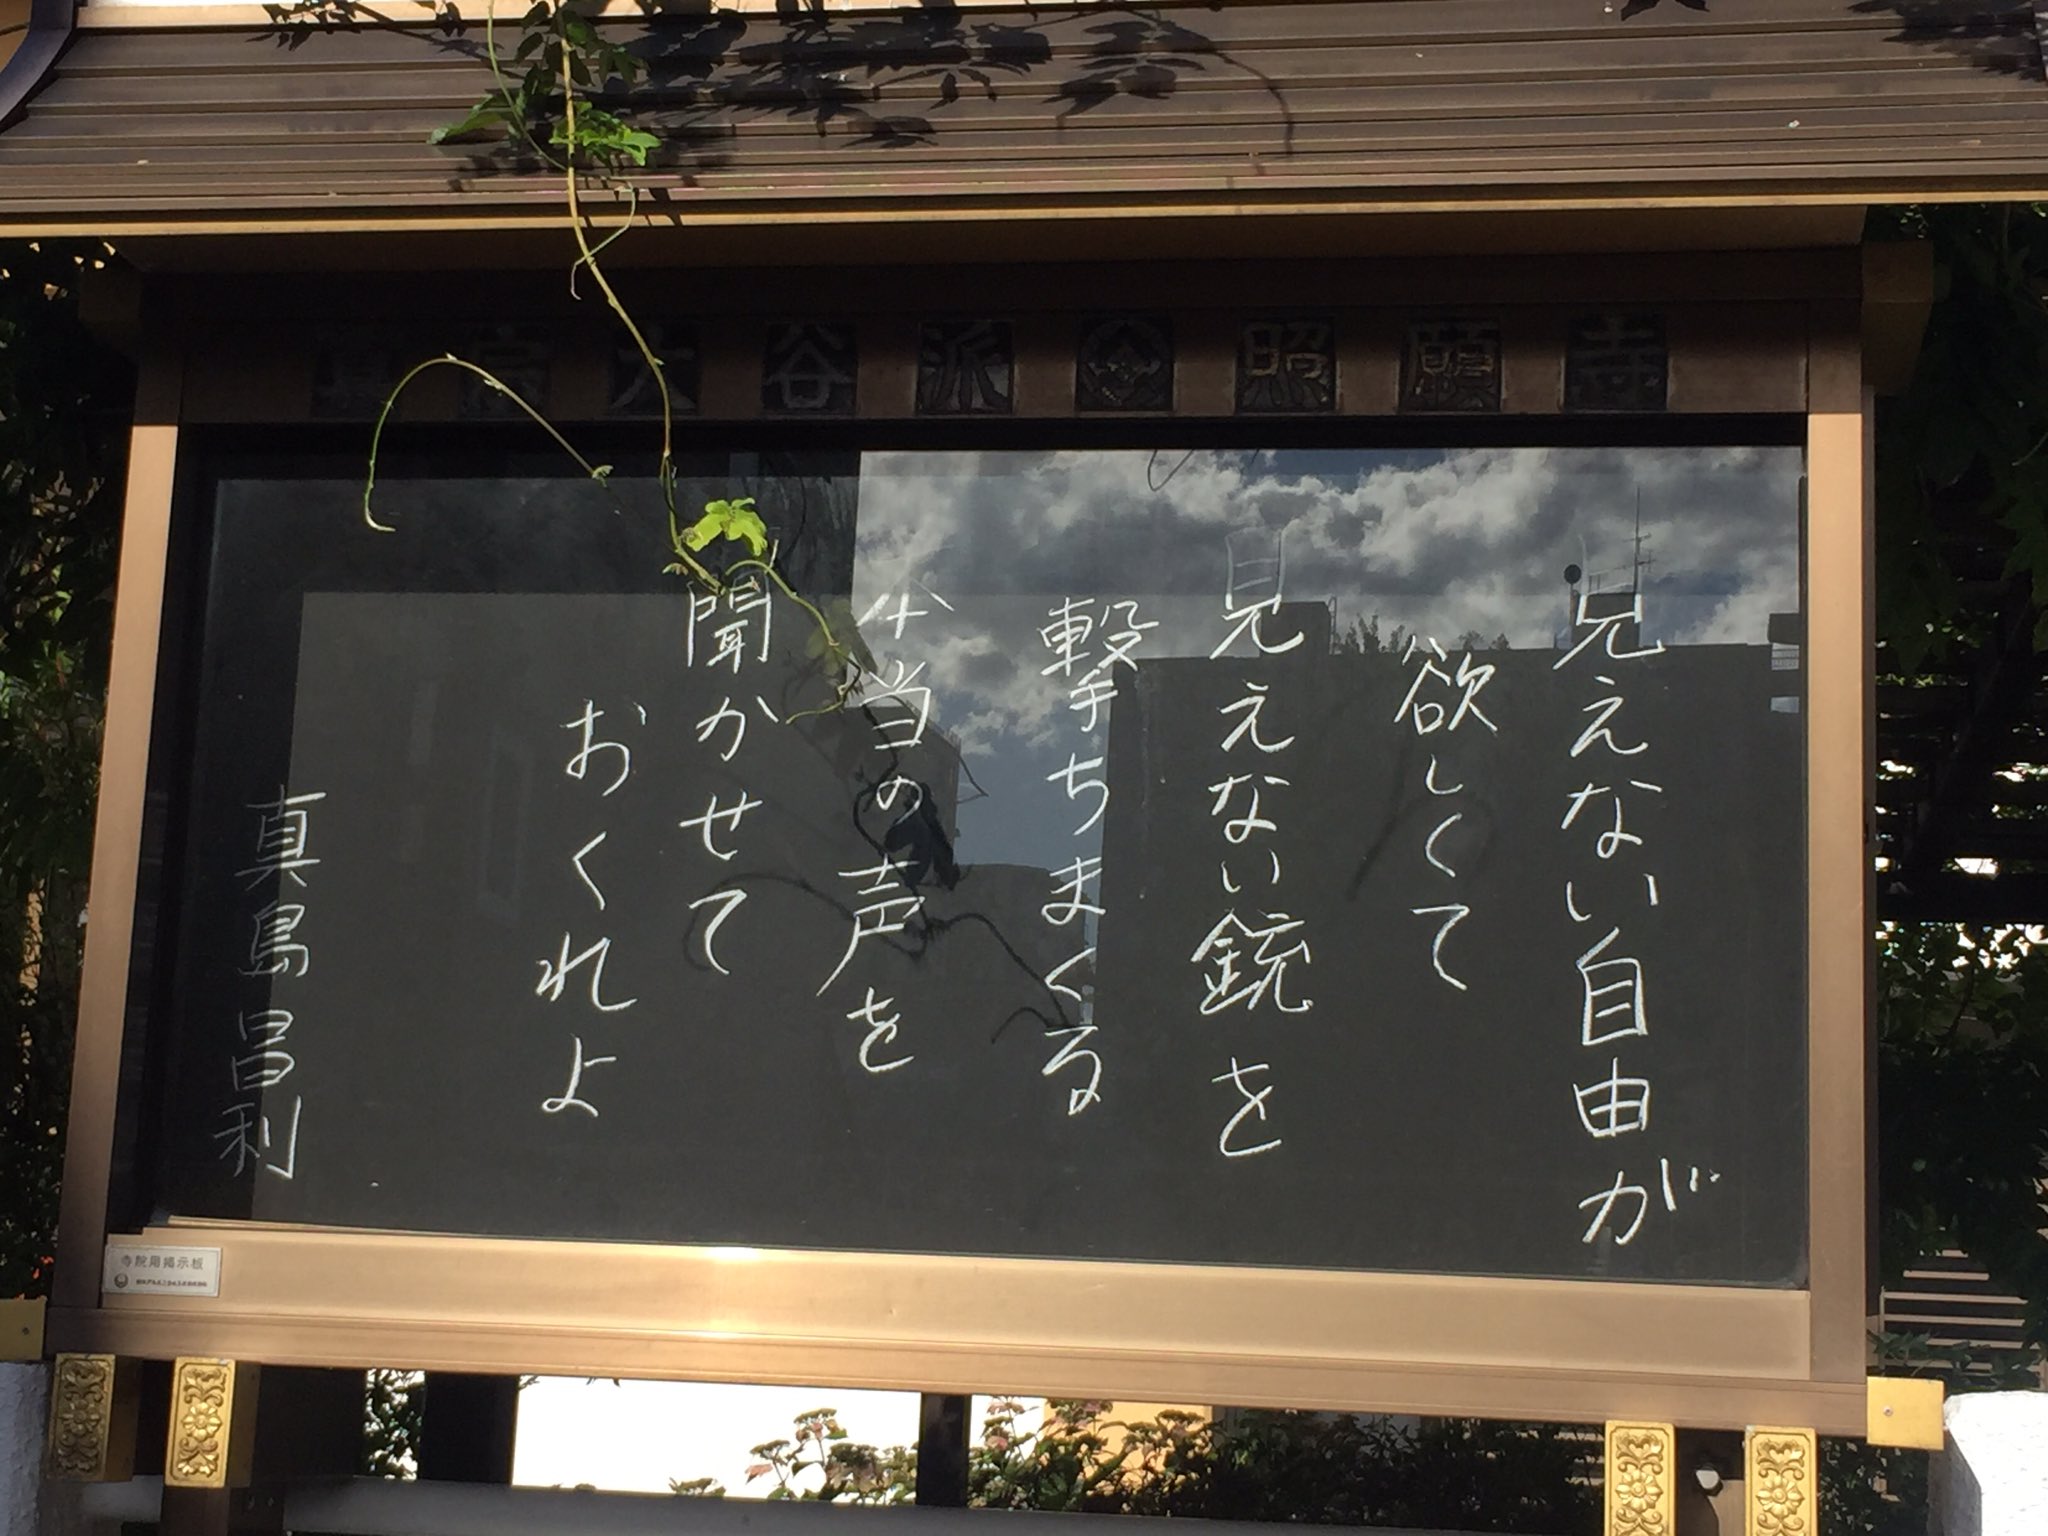 真宗大谷派 照願寺
見えない自由が
欲しくて
見えない銃を
撃ちまくる
本当の声を
聞かせて
おくれよ
真島昌利
寺院用掲示板